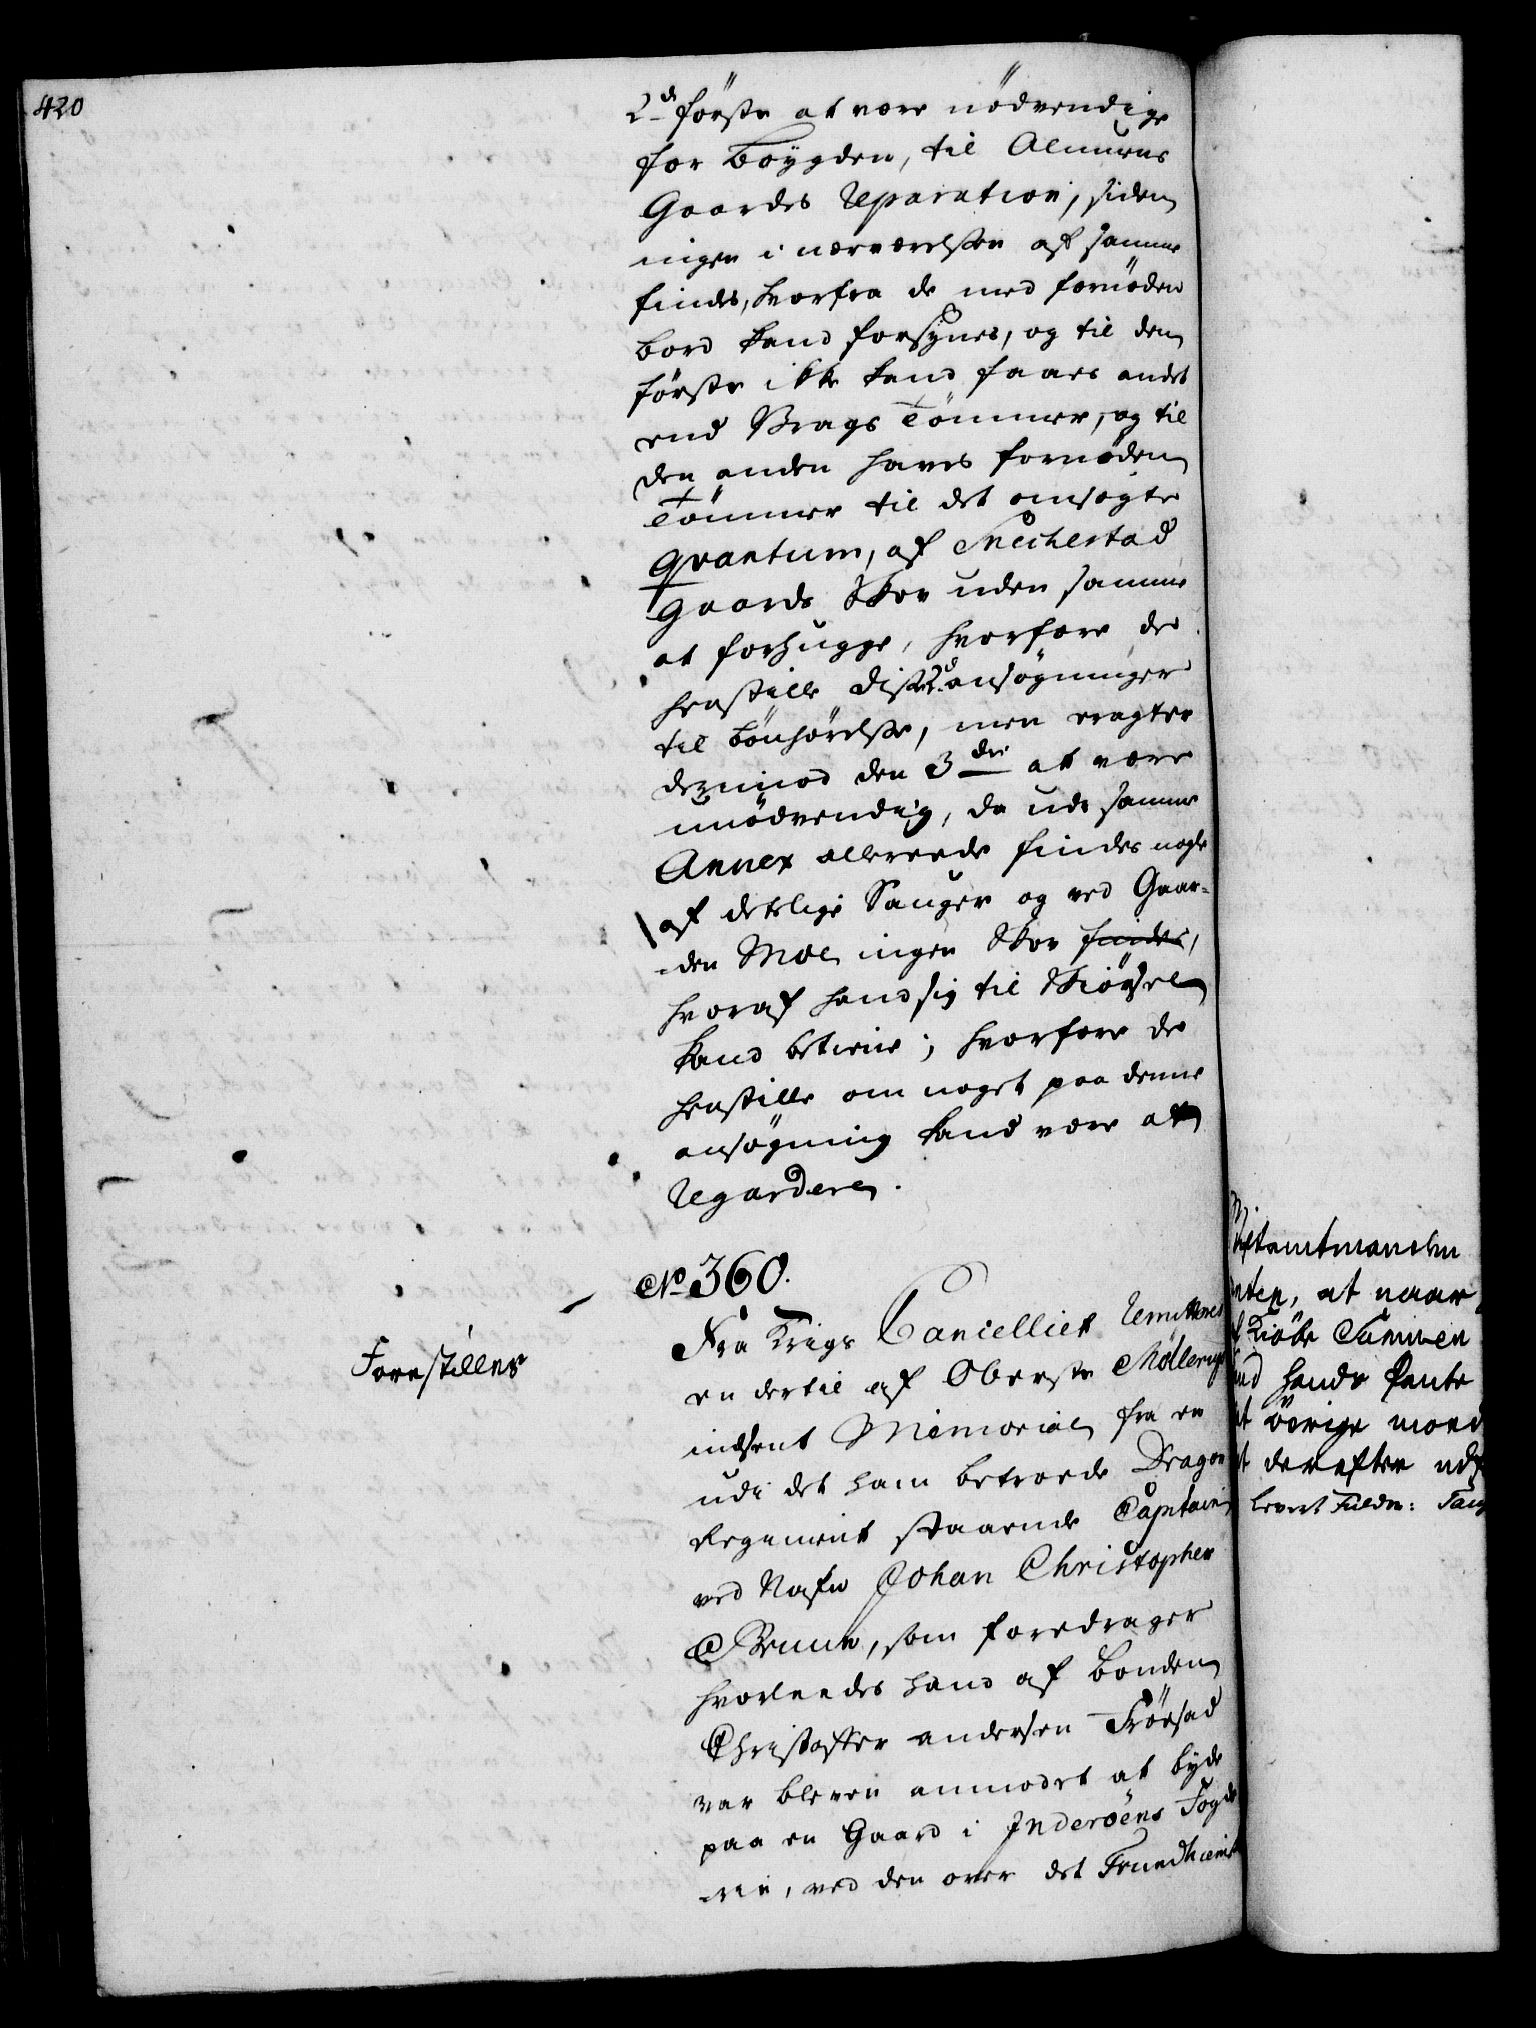 420
2de förste at være nödvendige
forböygden, til Almuens
Gaardes Reparation, siden
ingen i nærværelsen af samme
findes, hvorfra de med fornöden
bord kand forsynes, og til den
förste ikke kand faaes andet
end Vrags Tömmer, og til
den anden haves fornöden
Tömmer til det ansögte
qvantum, af Mechestad
Gaards Skov uden samme
at forhugge, hvorfore de
henstille disse 2de ansögninger
til bönhörelse, men eragter
derimod den 3die at være
unödvendig, da udi samme
Annex allereede findes nogle
af detslige Sauger og ved Gaar-
den Moe ingen Skov findes,
hvoraf hand sig til Skiörsel
kand betiene; hvorfore de
henstille om noget paa denne
ansögning kand være at
Regardere.
No 360.
Forestilles
Fra Krigs Cancelliet Remitteres
en dertil af Oberste Möllerup
indsent Memorial fra en
udi det ham betroede Dragon
Regiment staaende Capitain
ved Nafn Johan Christopher
Bruun, som foredrager
hvorleedes hand af bonden
Christoffer andersen Fröesad
var bleven anmodet at byde
paa en Gaard i Inderöens Fogde
rie, ved den over det Trundhiemske
Stiftamtmanden
at naar
Kiöbe Summen
hands Pante
övrige
derefter